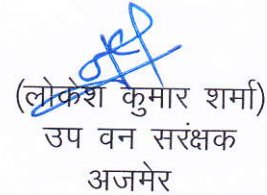 (लोकेश कुमार शर्मा)
उप वन सरंक्षक
अजमेर